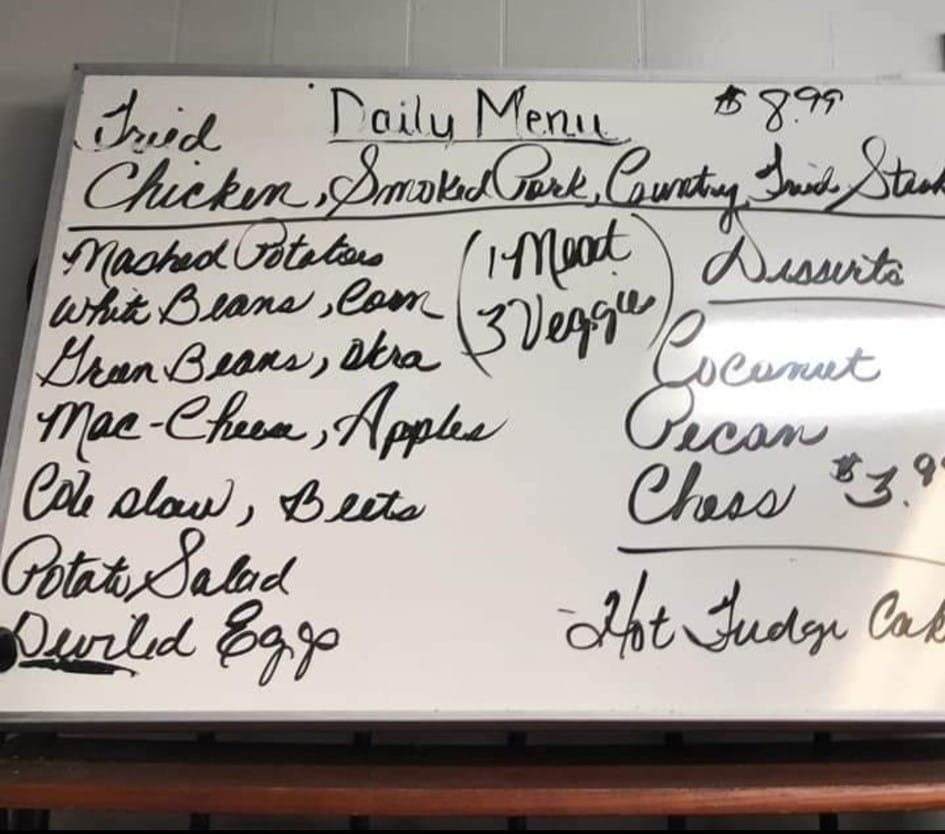 Daily Menu $8.99
Fried
Chicken, Smoked Pork, Country Fried Steak
Mashed Potatoes
White Beans, Corn
Green Beans, Okra
Mac-Cheese, Apples
Cole slaw, Beets
Potato Salad
Deviled Eggs
(1 Meat
3 Veggie)
Desserts
Coconut
Pecan
Chess $3.9
-Hot Fudge Cak